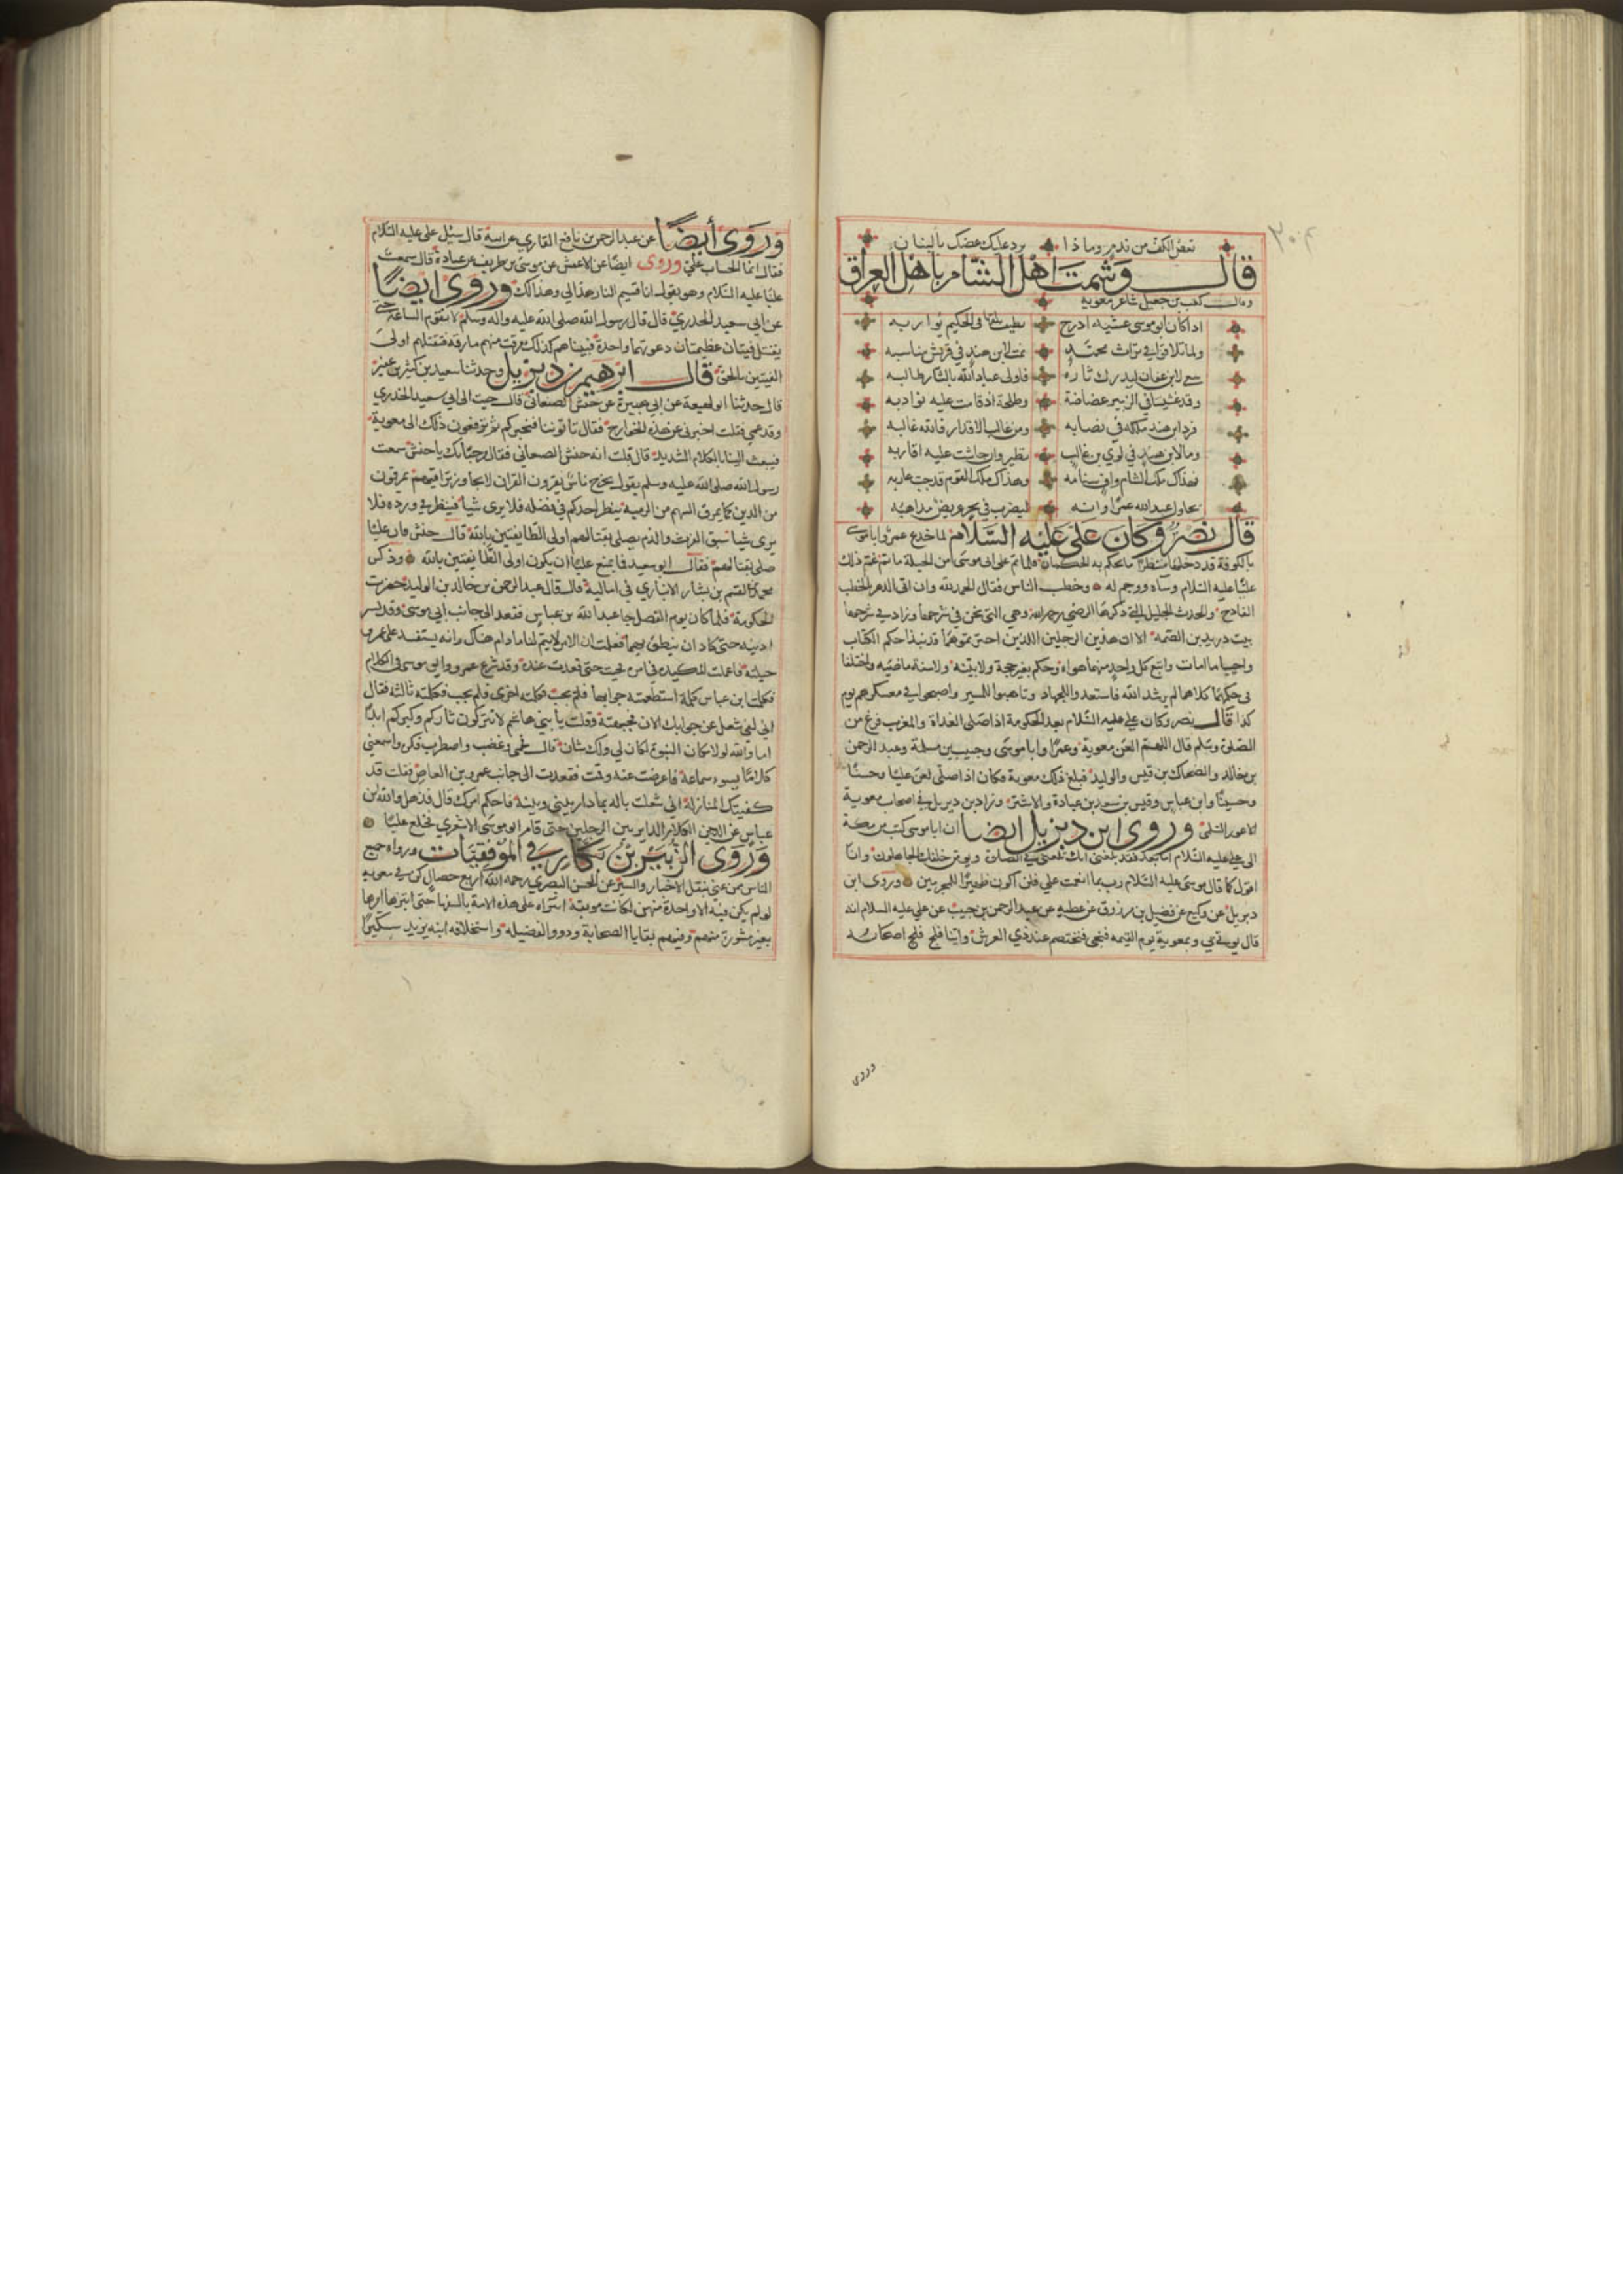 ٣٠٤
تعض الكف من ندم وماذا يرد عليك عضك بالبنان
قال وشمت اهل الشام باهل العراق
وقال كعب بن جعيل شاعر معوية
ابو موسى عشية اذرح يطيف في الحكيم يواربه
ولما تلاقوا في تراث محمد نمت لابن هند في قريش مناسبه
سعى لابن عفان ليدرك ثاره فاولى عباد الله بالثار طالبه
وقد غشيتنا في الزبير غضاضة وطلحة اذ قامت عليه نوادبه
فرد ابن هند ملكه في نصابه ومن غالب الاقدار فالله غالبه
وما لابن هند في لوي بن غالب نظير وان جاشت عليه اقاربه
فهذاك ملك الشام واف سنامه وهذاك ملك القوم قد جب غاربه
يحاول عبد الله عمرا وانه ليضرب في بحر عريض مذاهبه
قال نصر وكان على عليه السلام لما خدع عمرو ابا موسى
بالكوفة قد دخلها منتظرا ما يحكم به الحكمان فلما تم على ابى موسى من الحيلة ما تم غم ذلك
عليا عليه السلام وساه ووجم له وخطب الناس فقال الحمد لله وان اتى الدهر بالخطب
الفادح والحدث الجليل التي ذكرها الرضي رحمه الله وهي التى نحن في شرحها وزاد في شرحها
بيت دريد بن الصمه الا ان هذين الرجلين اللذين اخترتموهما قد نبذا حكم الكتاب
واحييا ما امات واتبع كل واحد منهما هواه وحكم بغير حجة ولا بينه ولا سنة ماضيه واختلفا
فى حكمهما كلاهما لم يرشد الله فاستعدوا للجهاد وتاهبوا للمسير واصبحوا في معسكركم يوم
كذا قال نصر وكان على عليه السلام بعد الحكومة اذا صلى الغداة والمغرب فرغ من
الصلوة وسلم قال اللهم العن معوية وعمرا وابا موسى وحبيب بن مسلمة وعبد الرحمن
بن خالد والضحاك بن قيس والوليد فبلغ ذلك معوية فكان اذا صلى لعن عليا وحسنا
وحسينا وابن عباس وقيس بن سعد بن عبادة والاشتر وزاد بن ديزيل في اصحاب معوية
الاعور السلمى وروى ابن ديزيل ايضا ان ابا موسى كتب من مكة
الى علي عليه السلام اما بعد فقد بلغنى انك تلعنني في الصلوة ويومن خلفك الجاهلون وانا
اقول كما قال موسى عليه السلام رب بما انعمت علي فلن اكون ظهيرا للمجرمين وروى ابن
ديزيل عن وكيع عن فضيل بن مرزوق عن عطيه عن عبد الرحمن بن حبيب عن علي عليه السلام انه
قال يوتى بي وبمعوية يوم القيمه فنجى فنختصم عند ذي العرش واينا فلج فلج اصحابه
وروى
وروى أيضا عن عبد الرحمن بن نافع القاري عن ابيه قال سيل على عليه السلام
فقال انما الحساب علي وروى ايضا عن الاعمش عن موسى بن طريف عن عباية قال سمعت
عليا عليه السلام وهو يقول انا قسيم النار هذا لي وهذا لك وروى ايضا
عن ابي سعيد الخدري قال قال رسول الله صلى الله عليه واله وسلم لا تقوم الساعة حتى
يقتتل فئتان عظيمتان دعوتهما واحدة فبينا هم كذلك مرقت منهم مارقة فقتلهم اولى
الفيتين بالحق قال ابرهيم بن ديزيل وحدثنا سعيد بن كثير بن عفير
قال حدثنا ابن لهيعة عن ابي هبيرة عن حنش الصنعاني قال جيت الى ابي سعيد الخدري
وقد عمي فقلت اخبرني عن هذه الخوارج فقال تاتوننا فنخبركم ثم ترفعون ذلك الى معوية
فيبعث الينا بالكلام الشديد قال قلت انه حنش الصنعاني فقال مرحبا بك يا حنش سمعت
رسول الله صلى الله عليه وسلم يقول يخرج ناس يقرون القران لا يجاوز تراقيهم يمرقون
من الدين كما يمرق السهم من الرمية ينظر احدكم في نصله فلا يرى شيا فينظر في فلا
يرى شيا سبق الفرث والدم يصلى بقتالهم اولى الطايفتين بالله قال حنش فان عليا
صلى بقتالهم فقال ابو سعيد فما يمنع عليا ان يكون اولى الطايفتين بالله وذكر
محمد بن القسم بن بشار الانباري في اماليه قال قال عبد الرحمن بن خالد بن الوليد حضرت
الحكومة فلما كان يوم الفصل جا عبد الله بن عباس فقعد الى جانب ابي موسى وقد نشر
اذنيه حتى كاد ان ينطق بهما فعلمت ان الامر لا يتم لنا ما دام هناك وانه يستفسد على عمرو
حيلته فاعملت المكيده في امره فجيت حتى قعدت عنده وقد شرع عمرو وابو موسى في الكلام
فكلمت ابن عباس كلمة استطعمته جوابها فلم يجب فكلمته اخرى فلم يجب فكلمته ثالثه فقال
اني لفي شغل عن جوابك الان فجبهته وقلت يا بني هاشم لا تتركون ثاركم وكبركم ابدا
اما والله لولا مكان النبوة لكان لي ولك شان قال فحمي وغضب واضطرب فكره واسمعني
كلاما يسوء سماعه فاعرضت عنه وقمت فقعدت الى جانب عمرو بن العاص فقلت قد
كفيتك المنازلة اني شغلت باله بما دار بيني وبينه فاحكم امرك قال فذهل والله ابن
عباس عن الكلام الداير بين الرجلين حتى قام ابو موسى الاشعري فخلع عليا
وروى الزبير بن بكار في الموفقيات ورواه جميع
الناس ممن عني بنقل الاخبار والسير عن الحسن البصري رحمه الله اربع خصال كن في معويه
لو لم يكن فيه الا واحدة منهن لكانت موبقة انتزاه على هذه الامة بالسفها حتى ابتزها امرها
بغير مشورة منهم وفيهم بقايا الصحابة وذوو الفضيله واستخلافه ابنه يزيد سكيرا